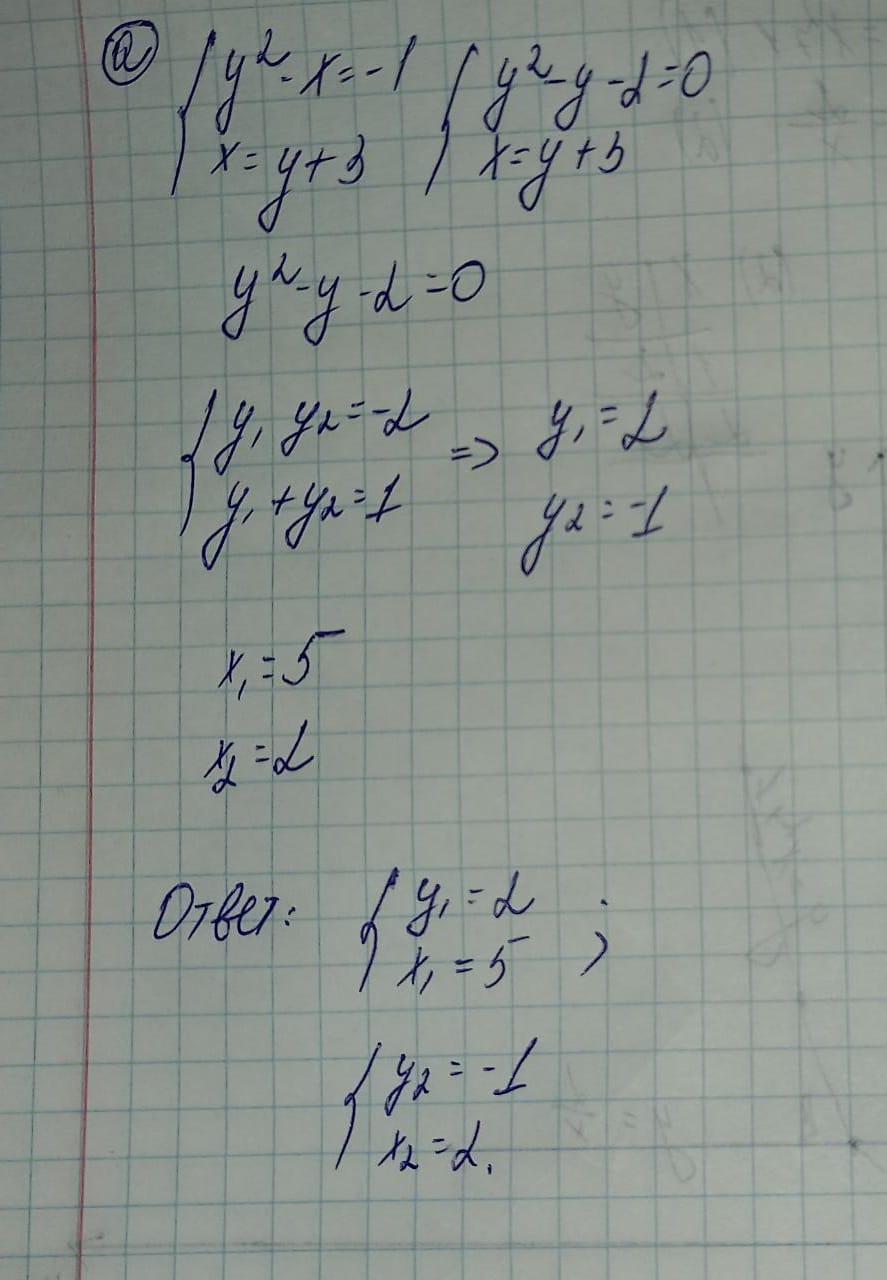 а) { y² - x = -1 { y² - y - 2 = 0
x = y + 3 x = y + 3
y² - y - 2 = 0
{ y₁ y₂ = -2 => y₁ = 2
y₁ + y₂ = 1 y₂ = -1
x₁ = 5
x₂ = 2
Ответ: { y₁ = 2 ;
x₁ = 5
{ y₂ = -1
x₂ = 2.